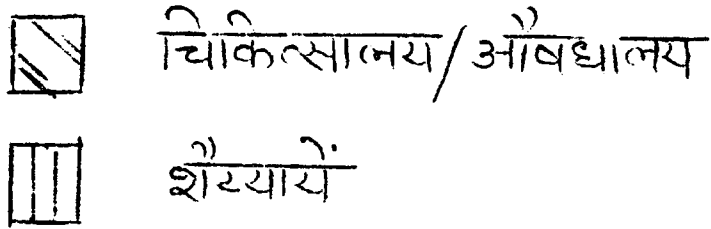 चिकित्सालय/औषधालय
शैय्यायें